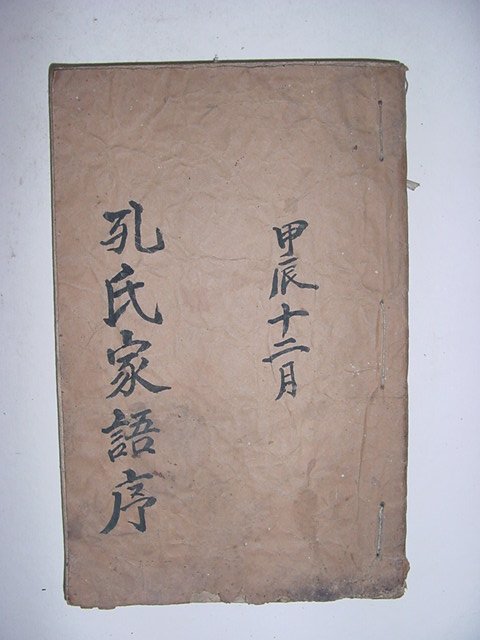 甲辰十二月
孔氏家語序